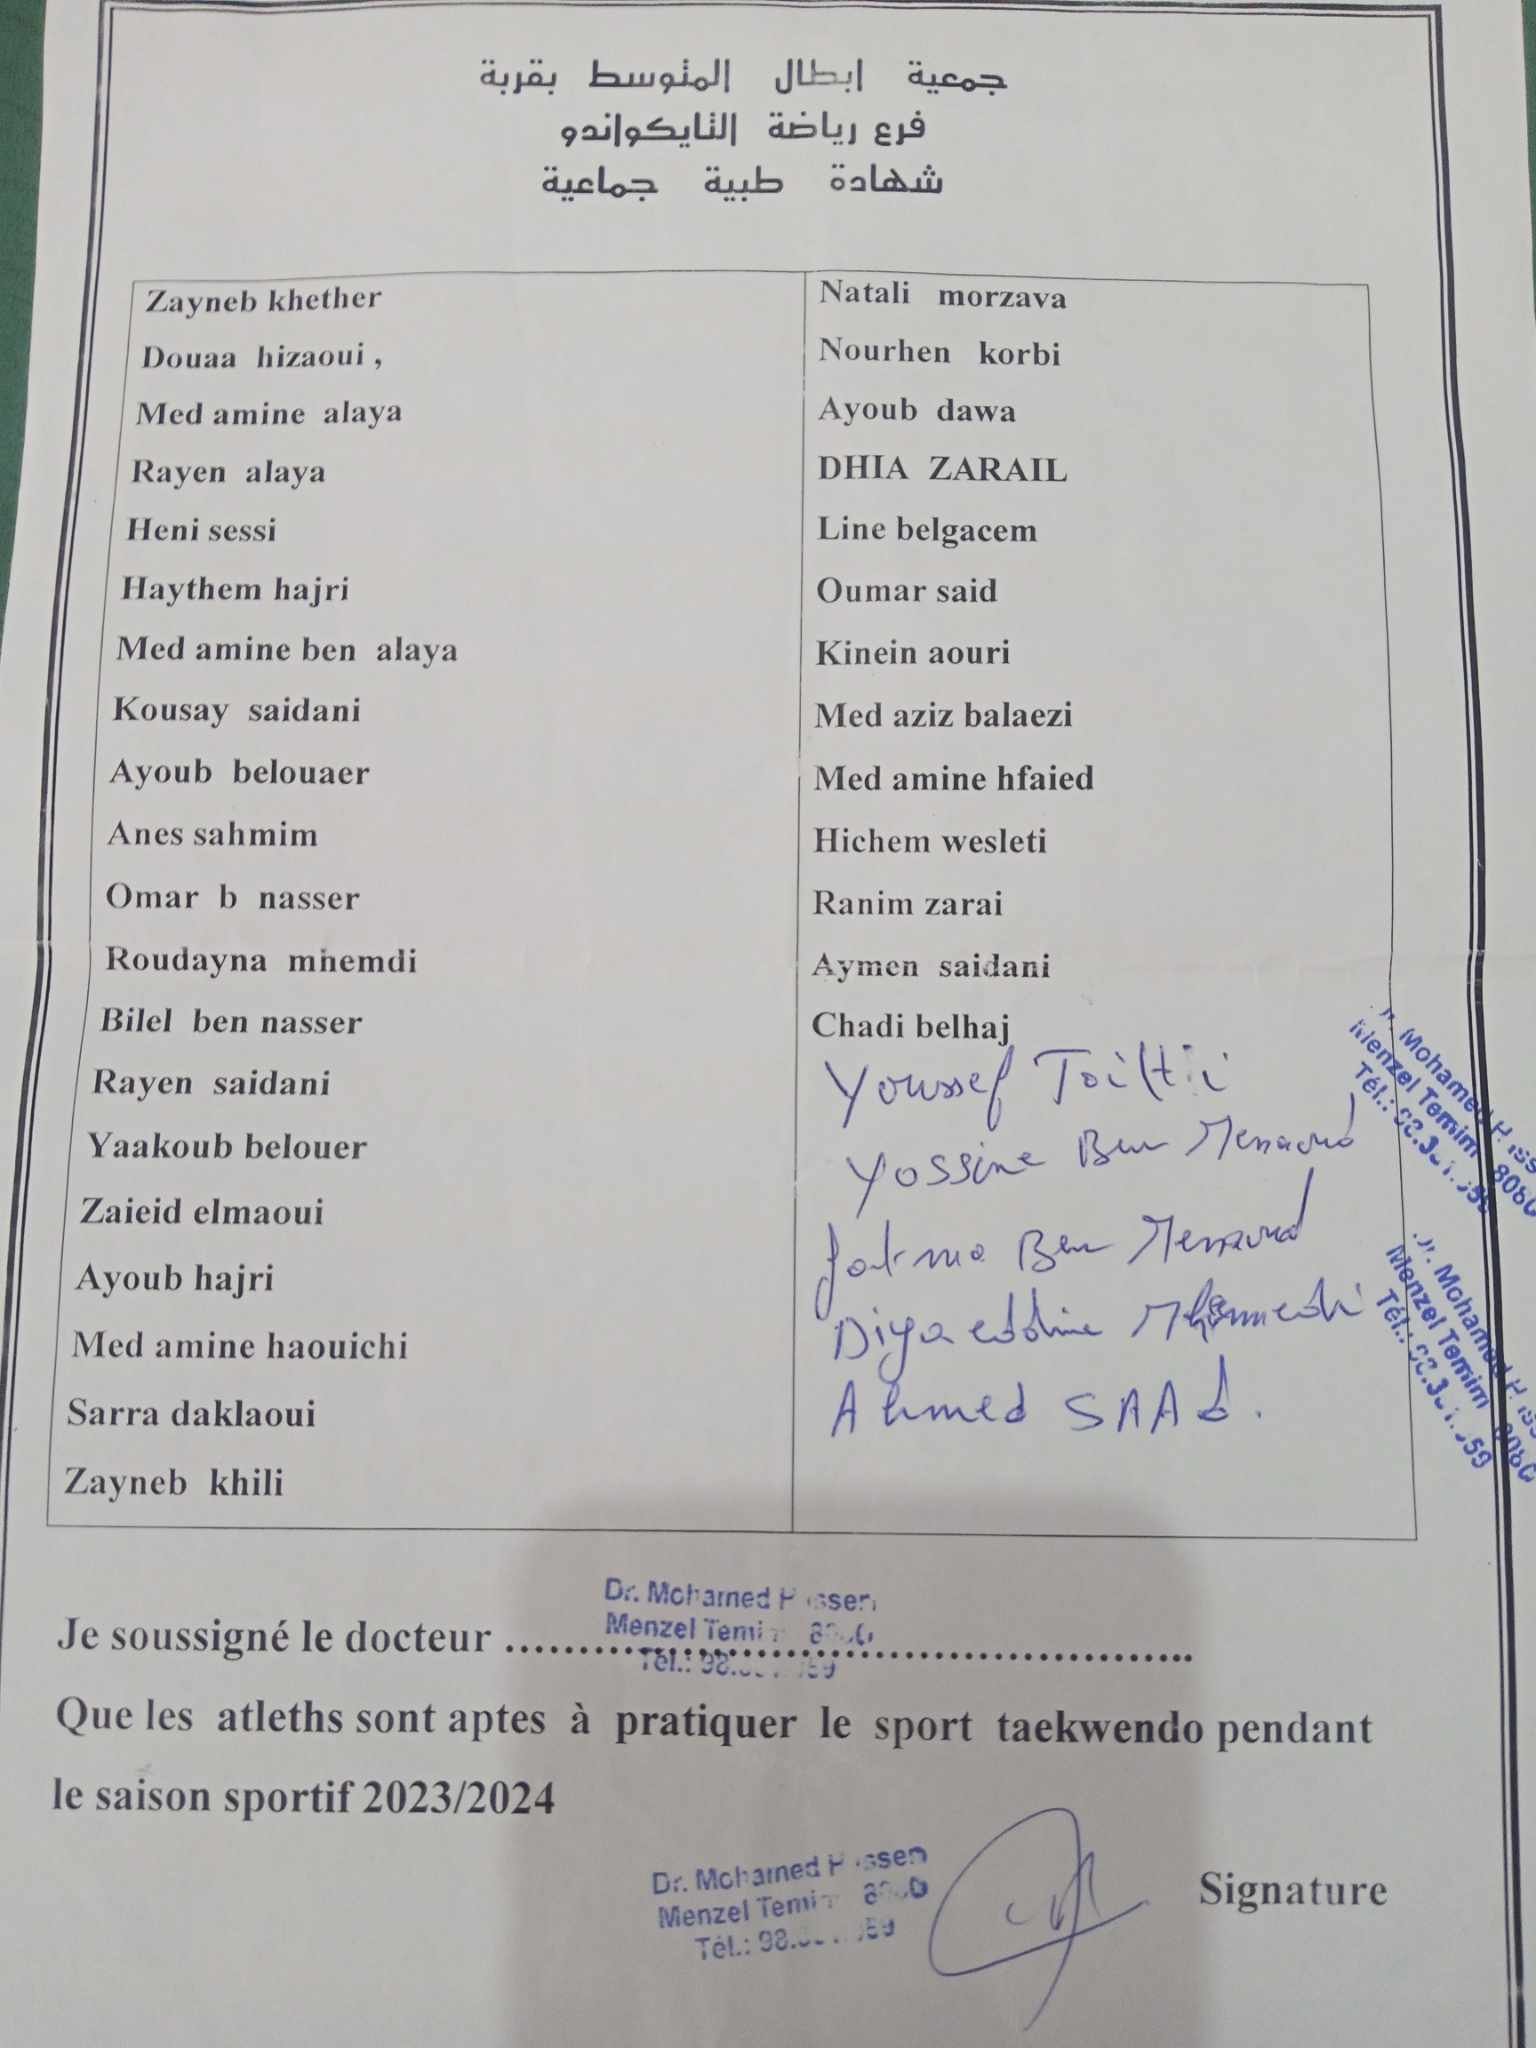 جمعية ابطال المتوسط بقربة
فرع رياضة التايكواندو
شهادة طبية جماعية
Zayneb khether
Douaa hizaoui ,
Med amine alaya
Rayen alaya
Heni sessi
Haythem hajri
Med amine ben alaya
Kousay saidani
Ayoub belouaer
Anes sahmim
Omar b nasser
Roudayna mhemdi
Bilel ben nasser
Rayen saidani
Yaakoub belouer
Zaieid elmaoui
Ayoub hajri
Med amine haouichi
Sarra daklaoui
Zayneb khili
Natali morzava
Nourhen korbi
Ayoub dawa
DHIA ZARAIL
Line belgacem
Oumar said
Kinein aouri
Med aziz balaezi
Med amine hfaied
Hichem wesleti
Ranim zarai
Aymen saidani
Chadi belhaj
Youssef
Yassine Ben Messaoud
fatma Ben Messaoud
Diyaeddine Mhammedi
Ahmed SAAd.
Mohamed
Menzel Temim
Tél.:
Mohamed
Menzel Temim
Tél.:
Je soussigné le docteur ........................................................
Dr. Mohamed
Menzel
Tél.:
Que les atleths sont aptes à pratiquer le sport taekwendo pendant
le saison sportif 2023/2024
Dr. Mohamed
Menzel
Tél.:
Signature